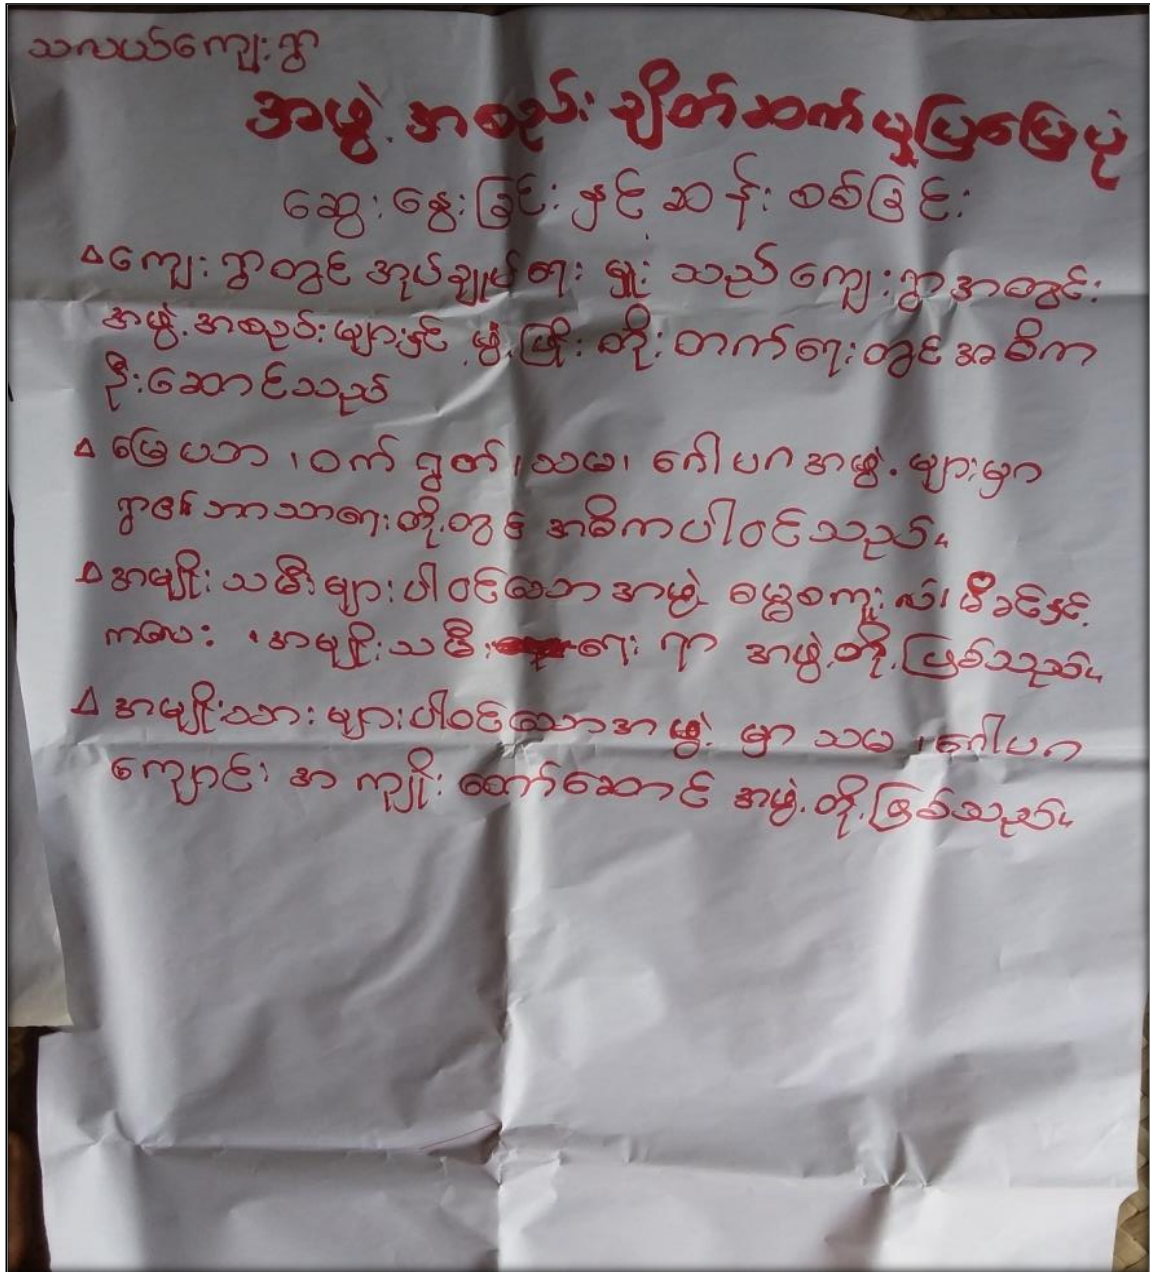 သလယ်ကျေးရွာ
အဖွဲ့အစည်းချိတ်ဆက်မှုပြမြေပုံ
ဆွေးနွေးခြင်းနှင့်ဆန်းစစ်ခြင်း
Δ ကျေးရွာတွင် အုပ်ချုပ်ရေးမှူးသည် ကျေးရွာအတွင်း
အဖွဲ့အစည်းများနှင့် ဖွံ့ဖြိုးတိုးတက်ရေးတွင် အဓိက
ဦးဆောင်သည်
Δ မြေပဘ၊ ဝက်ရွတ်၊ သမ၊ ဂေါပဂအဖွဲ့များမှာ
ဘာသာရေးတို့တွင် အဓိကပါဝင်သည်။
Δ အမျိုးသမီးများပါဝင်သောအဖွဲ့ ဓမ္မစကူးလ်၊ မိခင်နှင့်
ကလေး၊ အမျိုးသမီးရေးရာ အဖွဲ့တို့ဖြစ်သည်။
Δ အမျိုးသားများပါဝင်သောအဖွဲ့မှာ သမ၊ ဂေါပဂ
ကျောင်းအကျိုးတော်ဆောင် အဖွဲ့တို့ဖြစ်သည်။